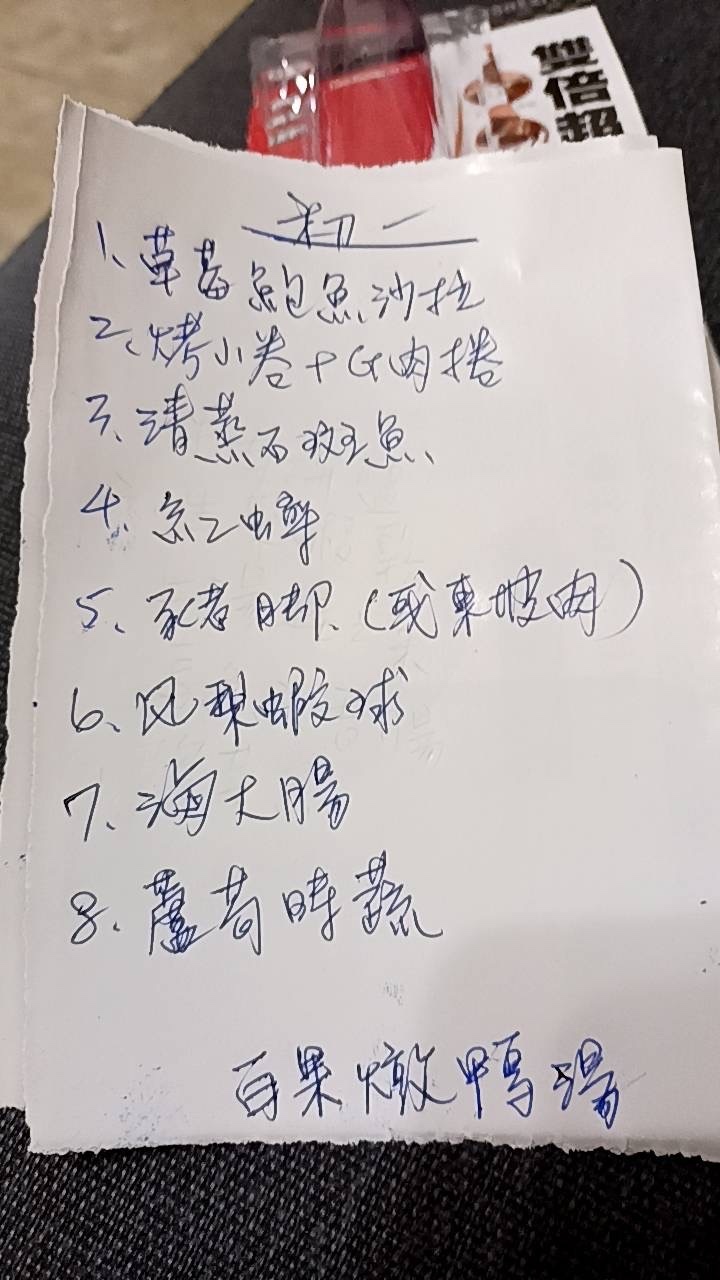 雙倍超
初一
1、草莓鮑魚沙拉
2、烤小卷+G肉捲
3、清蒸石斑魚
4、紅蟳
5、豬腳(或東坡肉)
6、凤梨蝦球
7、海大腸
8、蘆荀時蔬
百果燉鴨湯